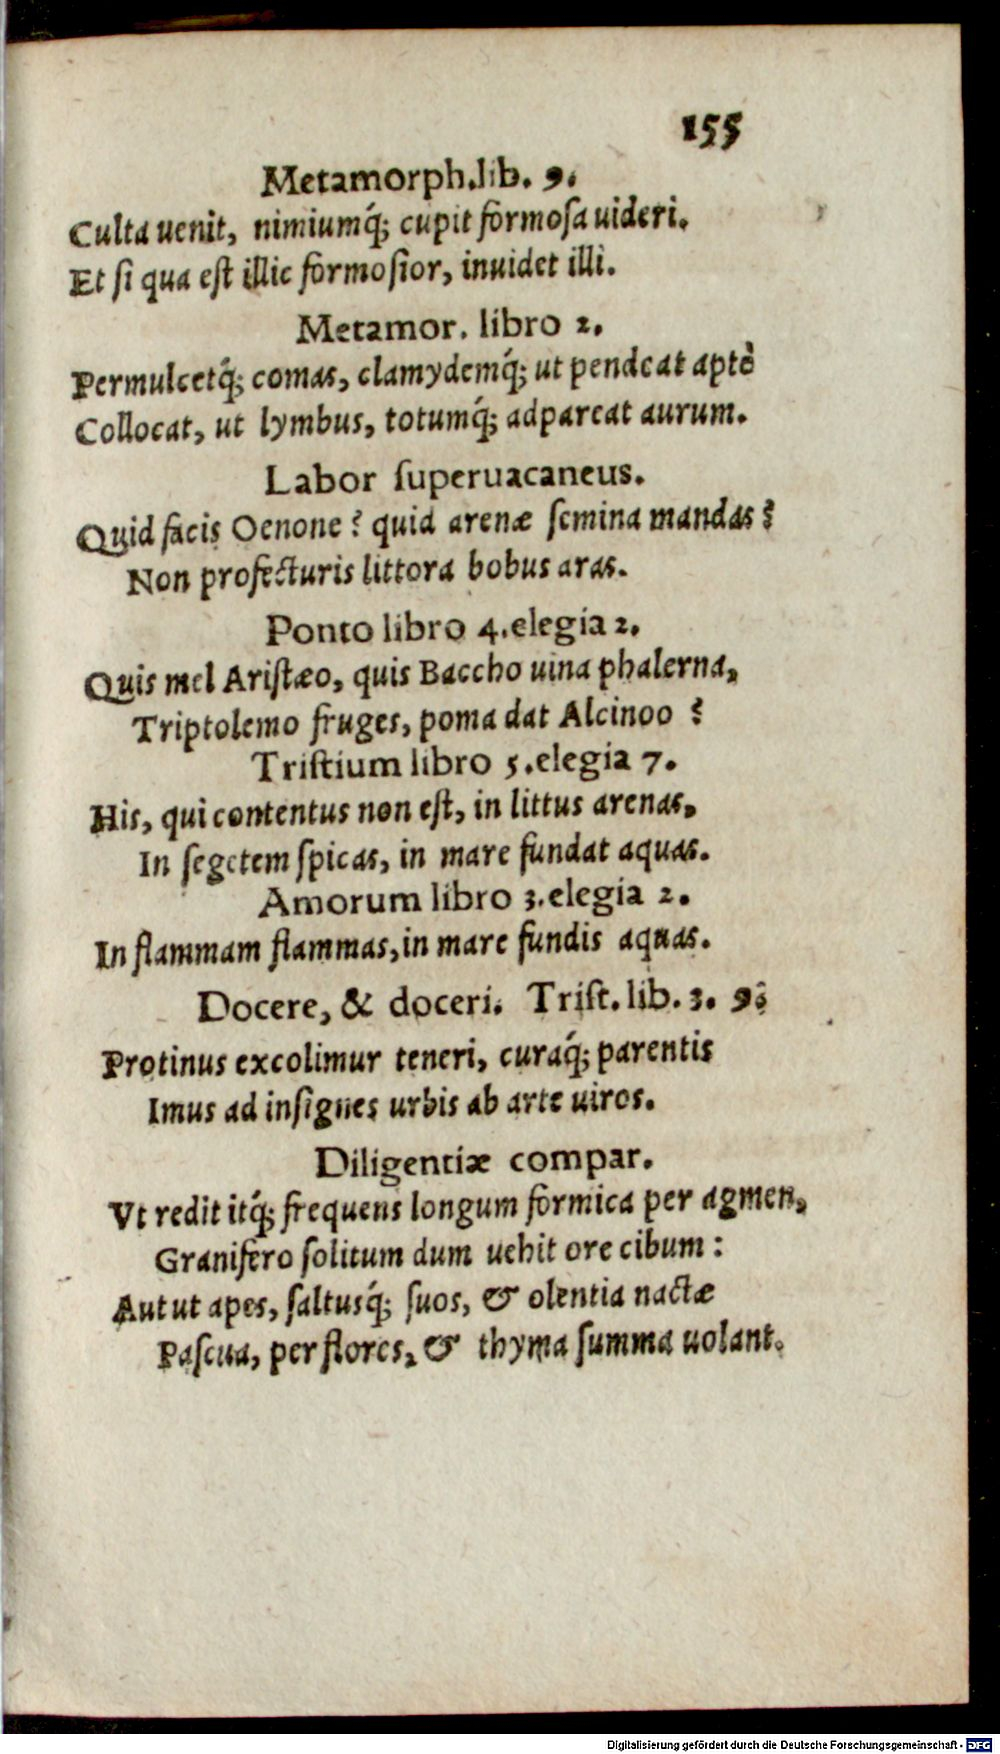 155
Metamorph.lib. 9.
Culta uenit, nimiumq́; cupit formosa uideri.
Et si qua est illic formosior, inuidet illi.
Metamor. libro 2.
Permulcetq́; comas, clamydemq́; ut pendeat aptè
Collocat, ut lymbus, totumq́; adpareat aurum.
Labor superuacaneus.
Quid facis Oenone? quid arenæ semina mandas?
Non profecturis littora bobus aras.
Ponto libro 4.elegia 2.
Quis mel Aristæo, quis Baccho uina phalerna,
Triptolemo fruges, poma dat Alcinoo ?
Tristium libro 5.elegia 7.
His, qui contentus non est, in littus arenas,
In segetem spicas, in mare fundat aquas.
Amorum libro 3.elegia 2.
In flammam flammas, in mare fundis aquas.
Docere, & doceri. Trist. lib. 3. 9.
Protinus excolimur teneri, curaq́; parentis
Imus ad insignes urbis ab arte uiros.
Diligentiæ compar.
Vt redit itq́; frequens longum formica per agmen,
Granifero solitum dum uehit ore cibum :
Aut ut apes, saltusq́; suos, & olentia nactæ
Pascua, per flores, & thyma summa uolant.
Digitalisierung gefördert durch die Deutsche Forschungsgemeinschaft - DFG